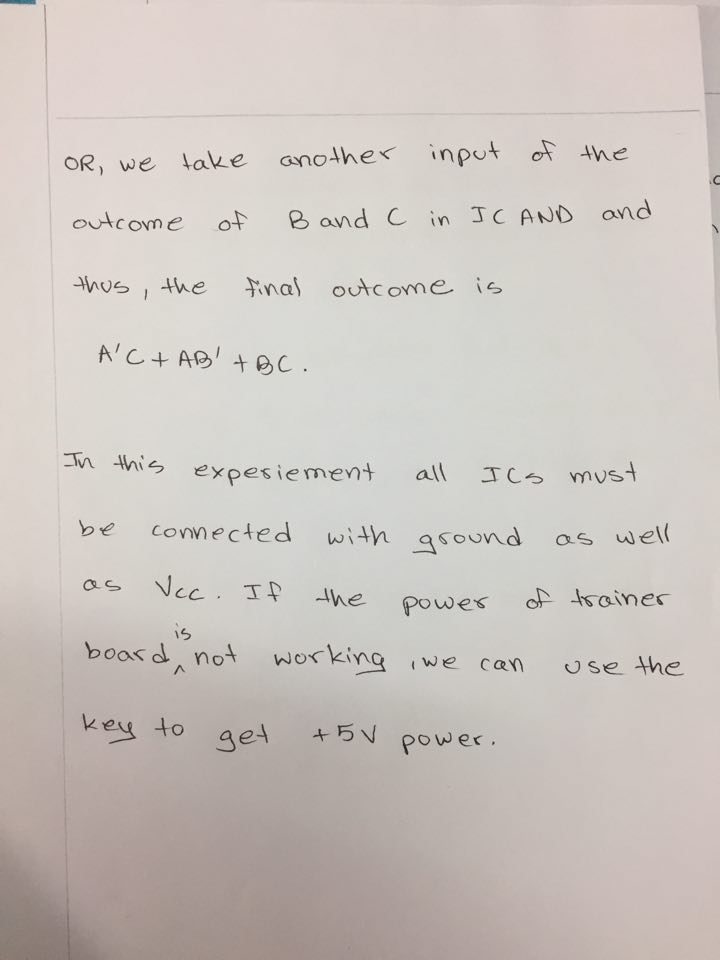 OR, we take another input of the
outcome of B and C in IC AND and
thus, the final outcome is
A'C + AB' + BC.
In this experiement all ICs must
be connected with ground as well
as Vcc. If the power of trainer
board is not working, we can use the
key to get +5V power.